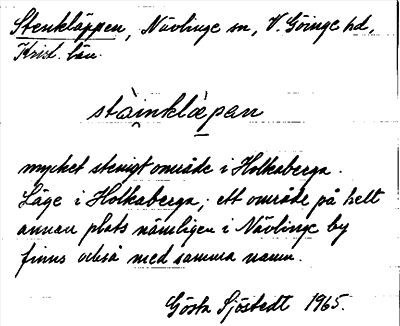 Stenkläppen, Nävlinge sn, V. Göinge hd,
Krist. län.
stàinklæ̀pan
mycket stenigt område i Holkaberga.
Läge i Holkaberga; ett område på helt
annan plats nämligen i Nävlinge by
finns också med samma namn.
Gösta Sjöstedt 1965.